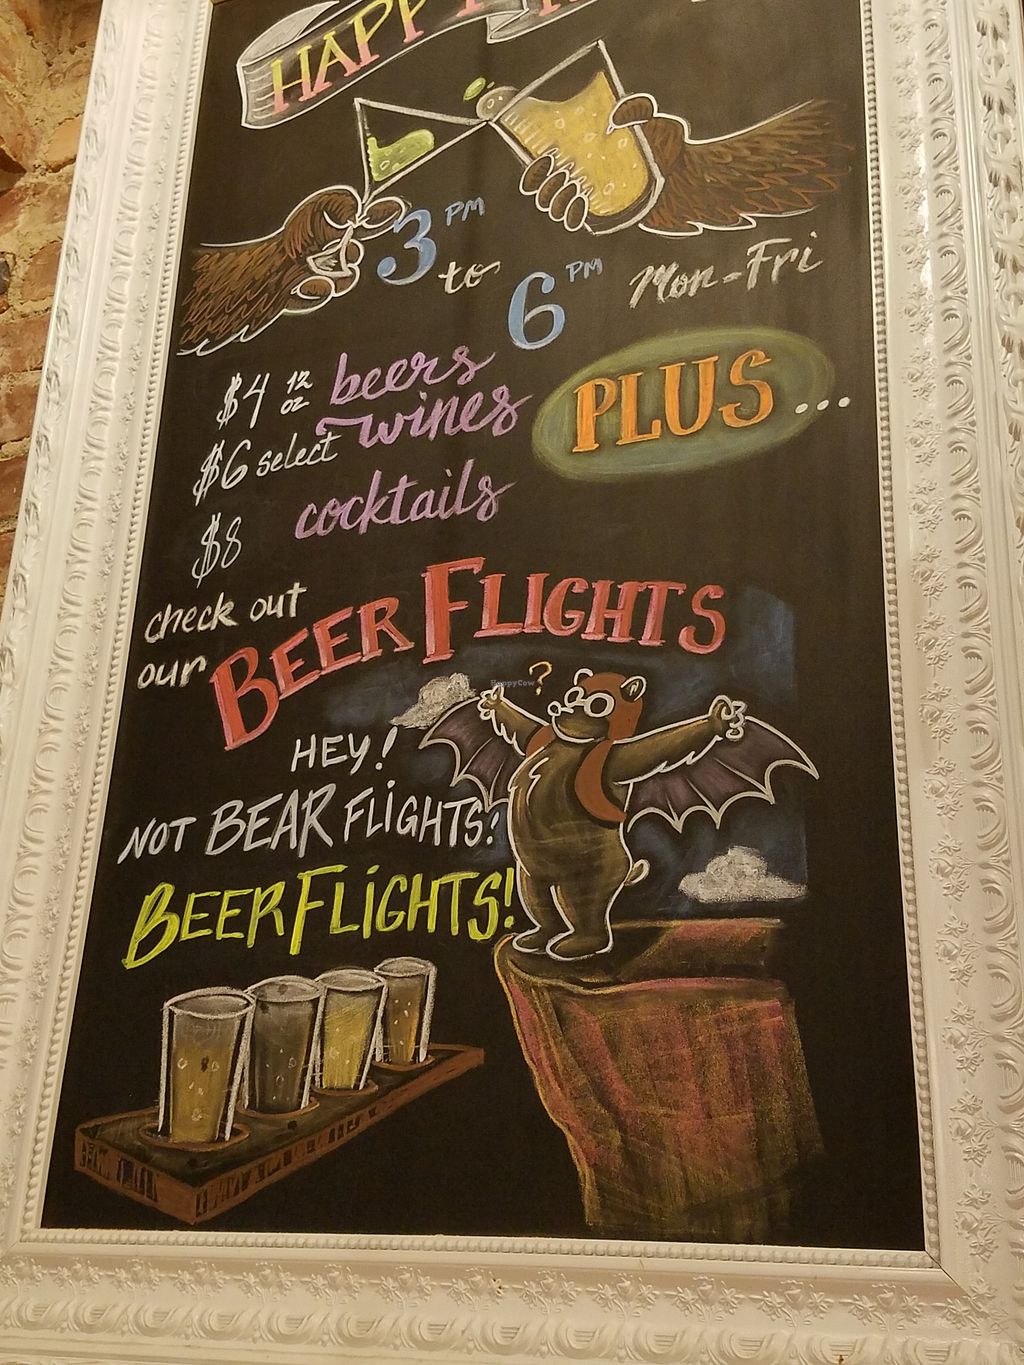 HAPP
3 PM to 6 PM Mon-Fri
$4 12 oz beers
$6 select wines
$8 cocktails
PLUS...
check out
our BEER FLIGHTS
?
HEY!
NOT BEAR FLIGHTS!
BEER FLIGHTS!
HappyCow